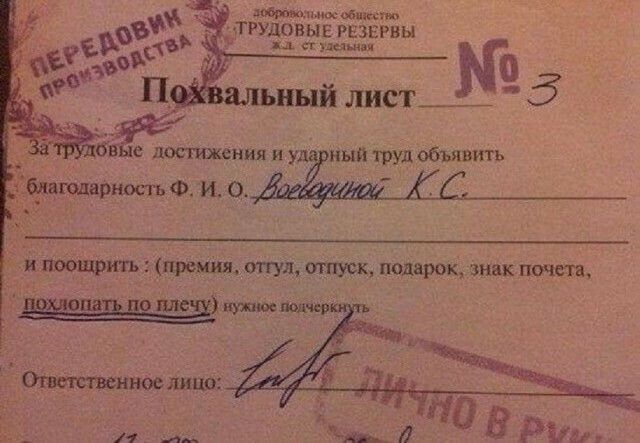 добровольное общество
ТРУДОВЫЕ РЕЗЕРВЫ
ж.д. ст удельная
ПЕРЕДОВИК
ПРОИЗВОДСТВА
Похвальный лист № 3
За трудовые достижения и ударный труд объявить
благодарность Ф. И. О. Воеводиной К.С.
и поощрить : (премия, отгул, отпуск, подарок, знак почета,
похлопать по плечу) нужное подчеркнуть
Ответственное лицо:
ЛИЧНО В РУК